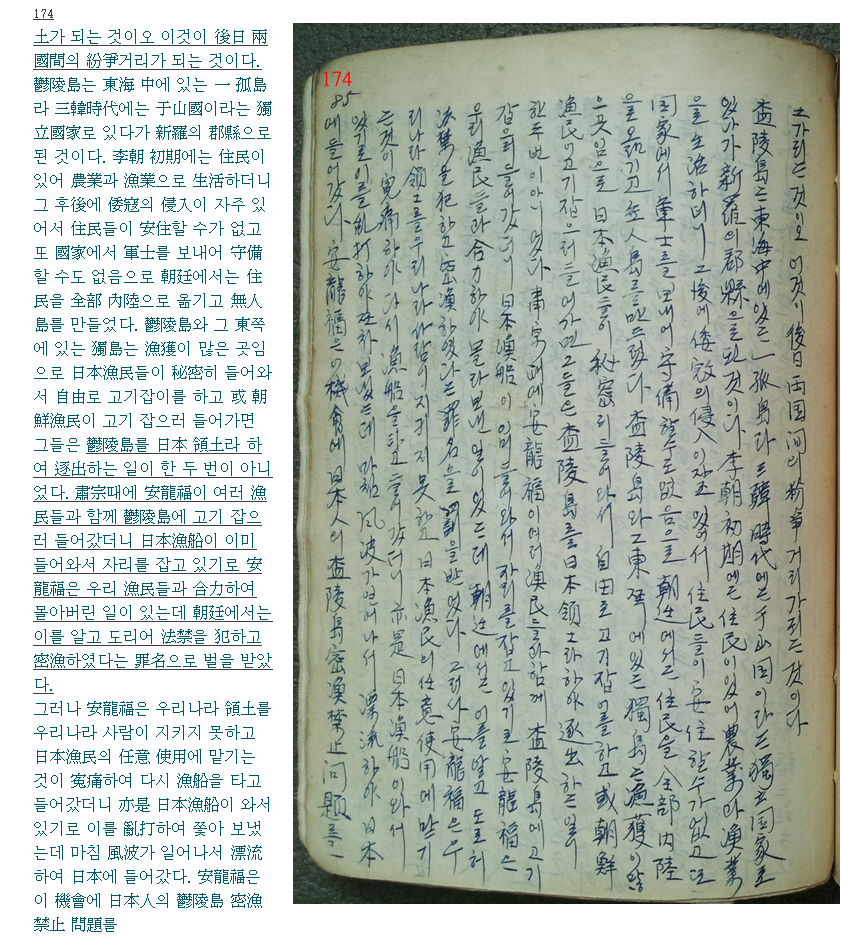 174
土가 되는 것이오 이것이 後日 兩
國間의 紛爭거리가 되는 것이다.
鬱陵島는 東海 中에 있는 一 孤島
라 三韓時代에는 于山國이라는 獨
立國家로 있다가 新羅의 郡縣으로
된 것이다. 李朝 初期에는 住民이
있어 農業과 漁業으로 生活하더니
그 후後에 倭寇의 侵入이 자주 있
어서 住民들이 安住할 수가 없고
또 國家에서 軍士를 보내어 守備
할 수도 없음으로 朝廷에서는 住
民을 全部 內陸으로 옮기고 無人
島를 만들었다. 鬱陵島와 그 東쪽
에 있는 獨島는 漁獲이 많은 곳임
으로 日本漁民들이 秘密히 들어와
서 自由로 고기잡이를 하고 或 朝
鮮漁民이 고기 잡으러 들어가면
그들은 鬱陵島를 日本 領土라 하
여 逐出하는 일이 한 두 번이 아니
었다. 肅宗때에 安龍福이 여러 漁
民들과 함께 鬱陵島에 고기 잡으
러 들어갔더니 日本漁船이 이미
들어와서 자리를 잡고 있기로 安
龍福은 우리 漁民들과 合力하여
몰아버린 일이 있는데 朝廷에서는
이를 알고 도리어 法禁을 犯하고
密漁하였다는 罪名으로 벌을 받았
다.
그러나 安龍福은 우리나라 領土를
우리나라 사람이 지키지 못하고
日本漁民의 任意 使用에 맡기는
것이 寃痛하여 다시 漁船을 타고
들어갔더니 亦是 日本漁船이 와서
있기로 이를 亂打하여 쫓아 보냈
는데 마침 風波가 일어나서 漂流
하여 日本에 들어갔다. 安龍福은
이 機會에 日本人의 鬱陵島 密漁
禁止 問題를
174
85
土가 되는 것이오 이것이 後日 両国间의 紛争거리가 되는 것이다
盃陵島는 東海中에 있는 一 孤島라 三韓時代에는 于山国이라는 獨立国家로
있다가 新羅의 郡縣으로 된 것이다 李朝初期에는 住民이 있어 農業과 漁業
을로 生活하더니 그後에 倭寇의 侵入이 자조 있어서 住民들이 安住할 수가 없고 또
国家에서 軍士를 보내여 守備할 수도 없음으로 朝廷에서는 住民을 全部 内陸
을 옮기고 無人島를 만드렀다 盃陵島와 그 東쪽에 있는 獨島는 漁獲이 많
은 곳임으로 日本漁民들이 秘密히 들어와서 自由로 고기잡이를 하고 或 朝鮮
漁民이 고기잡으러 들어가면 그들은 盃陵島를 日本領土라 하야 逐出하는 일이
한두번이 아니였다 肅宗때에 安龍福이 여러 漁民들과 함께 盃陵島에 고기
잡으러 들어갔더니 日本漁船이 이미 들어와서 자리를 잡고 있기로 安龍福은
우리 漁民들과 合力하야 몰라보낸 일이 있는데 朝廷에서는 이를 알고 도로혀
法禁을 犯하고 密漁하였다는 罪名으로 罰을 받었다 그러나 安龍福은 우
리나라 領土를 우리나라 사람이 지키지 못하고 日本漁民의 任意使用에 맏기
는것이 寃痛하야 다시 漁船을 타고 들어갔더니 亦是 日本漁船이 와서
있기로 이를 亂打하야 쪼차 보냈는데 마침 風波가 이러나서 漂流하야 日本
에 들어갔다 安龍福은 이 機會에 日本人의 盃陵島 密漁禁止 问題를